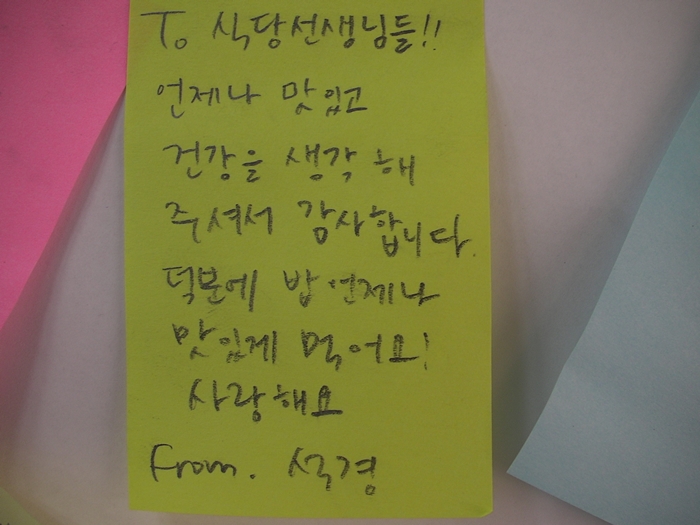 To 식당선생님들!!
언제나 맛있고
건강을 생각해
주셔서 감사합니다.
덕분에 밥 언제나
맛있게 먹어요!
사랑해요
From. 석경